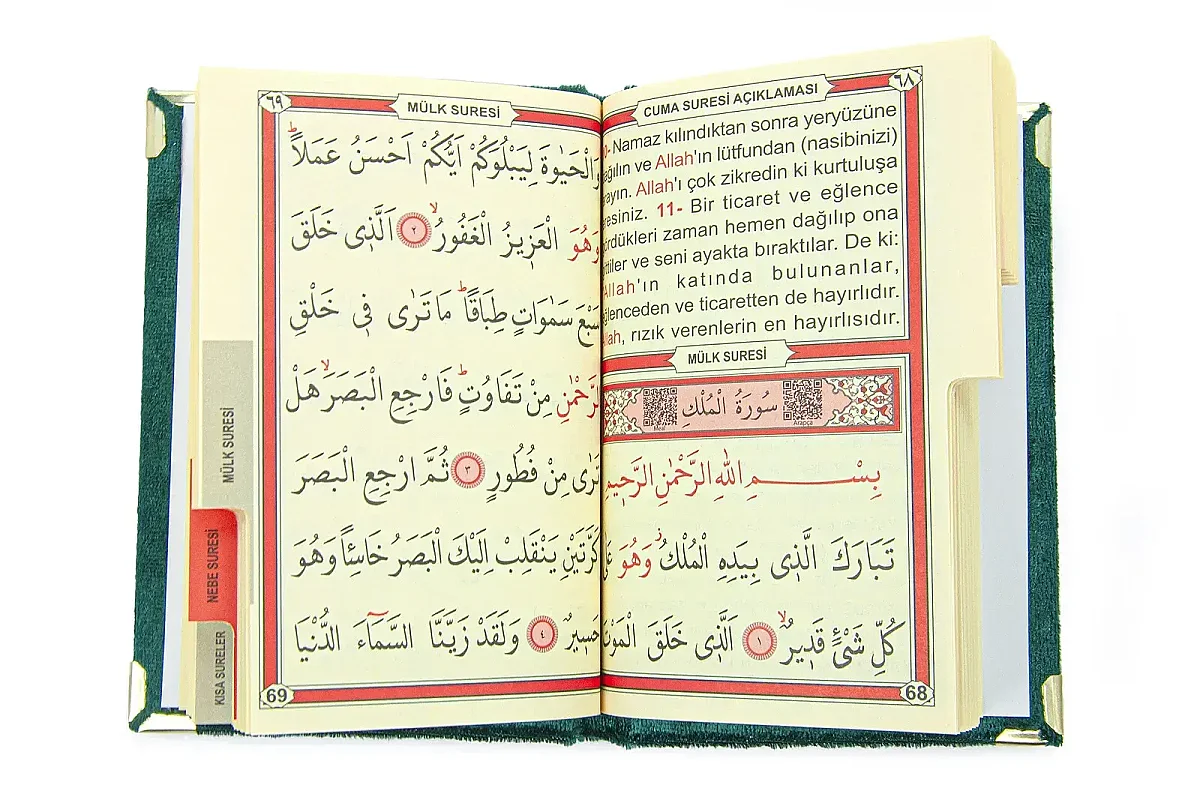 ٦٨
CUMA SURESİ AÇIKLAMASI
0- Namaz kılındıktan sonra yeryüzüne
ağılın ve Allah'ın lütfundan (nasibinizi)
rayın. Allah'ı çok zikredin ki kurtuluşa
resiniz. 11- Bir ticaret ve eğlence
ördükleri zaman hemen dağılıp ona
ittiler ve seni ayakta bıraktılar. De ki:
Allah'ın katında bulunanlar,
ğlenceden ve ticaretten de hayırlıdır.
llah, rızık verenlerin en hayırlısıdır.
MÜLK SURESİ
سُورَةُ الْمُلْكِ
Arapça
Meal
بِسْـــــــمِ اللهِ الرَّحْمٰنِ الرَّحِيمِ
تَبَارَكَ الَّذ۪ى بِيَدِهِ الْمُلْكُۘ وَهُوَ
كُلِّ شَىْءٍ قَد۪يرٌۙ ١ اَلَّذ۪ى خَلَقَ الْمَوْتَ
68
٦٩
MÜLK SURESİ
وَالْحَيٰوةَ لِيَبْلُوَكُمْ اَيُّكُمْ اَحْسَنُ عَمَلًاۜ
وَهُوَ الْعَز۪يزُ الْغَفُورُۙ ٢ اَلَّذ۪ى خَلَقَ
سَبْعَ سَمٰوَاتٍ طِبَاقًاۜ مَا تَرٰى ف۪ى خَلْقِ
الرَّحْمٰنِ مِنْ تَفَاوُتٍۜ فَارْجِعِ الْبَصَرَۙ هَلْ
تَرٰى مِنْ فُطُورٍ ٣ ثُمَّ ارْجِعِ الْبَصَرَ
كَرَّتَيْنِ يَنْقَلِبْ اِلَيْكَ الْبَصَرُ خَاسِئًا وَهُوَ
حَس۪يرٌ ٤ وَلَقَدْ زَيَّنَّا السَّمَٓاءَ الدُّنْيَا
69
MÜLK SURESİ
NEBE SURESİ
KISA SURELER